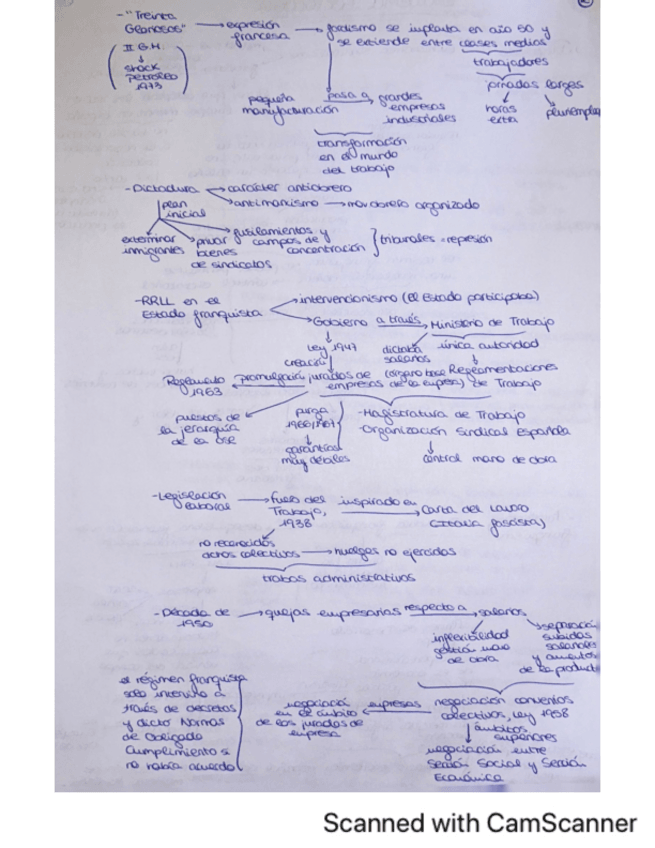 - "Treinta Gloriosos" → expresión francesa → fordismo se implanta en año 50 y
se extiende entre clases medias
II G.M.
↓
shock
petróleo
1973
trabajadores
jornadas largas
horas extra
pluriemple
pequeña manufacturación
pasa a
grandes empresas industriales
transformación
en el mundo
del trabajo
- Dictadura → carácter antiobrero
→ mov obrero organizado
plan inicial
exterminar
privar bienes de sindicatos
fusilamientos y
campos de
concentración
tribunales = represión
- RRLL en el
Estado franquista
intervencionismo (el Estado participaba)
Gobierno a través → Ministerio de Trabajo
Ley 1947
dictaba salarios
única autoridad
creación
jurados de
empresas
Reglamentaciones
de Trabajo
Reglamento
1953
promulgación
puestos de
la jerarquía
de la OSE
purga
garantías
muy débiles
- Magistratura de Trabajo
- Organización Sindical Española
↓
control mano de obra
- Legislación
laboral
→ Fuero del
Trabajo,
1938
inspirado en → Carta del Lavoro
(Italia fascista)
no reconocidos
actos colectivos → huelgas no ejercidas
trabas administrativas
- Década de
1950
→ quejas empresarias respecto a → salarios
inflexibilidad
gestión mano
de obra
separación
subidas
salariales
y aumentos
de la product
negociación convenios
colectivos, Ley 1958
empresas
negociación
en el ámbito
de los jurados de
empresa
ámbitos
superiores
negociación entre
Sección Social y Sección
Económica
el régimen franquista
solo intervino a
través de decretos
y dictó Normas
de Obligado
Cumplimiento si
no había acuerdo
Scanned with CamScanner